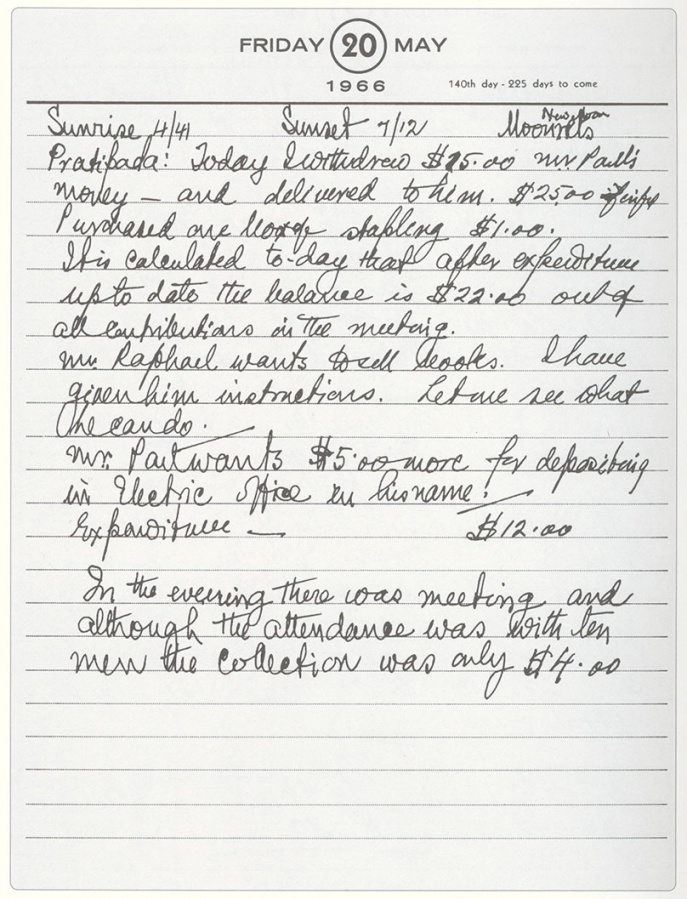 FRIDAY 20 MAY
1966 140th day - 225 days to come
New Moon
Sunrise 4/41 Sunset 7/12
Pratipada: Today I withdrew $25.00 Mr. Paul's
money — and delivered to him. $25.00
Purchased one stapling $1.00.
It is calculated to-day that after expenditure
upto date the balance is $22.00 out of
all contributions in the meeting.
Mr. Raphael wants to sell books. I have
given him instructions. Let me see what
he can do.
Mr. Paul wants $5.00 more for depositing
in Electric office in his name.
Expenditure — $12.00
In the evening there was meeting and
although the attendance was with ten
men the collection was only $4.00